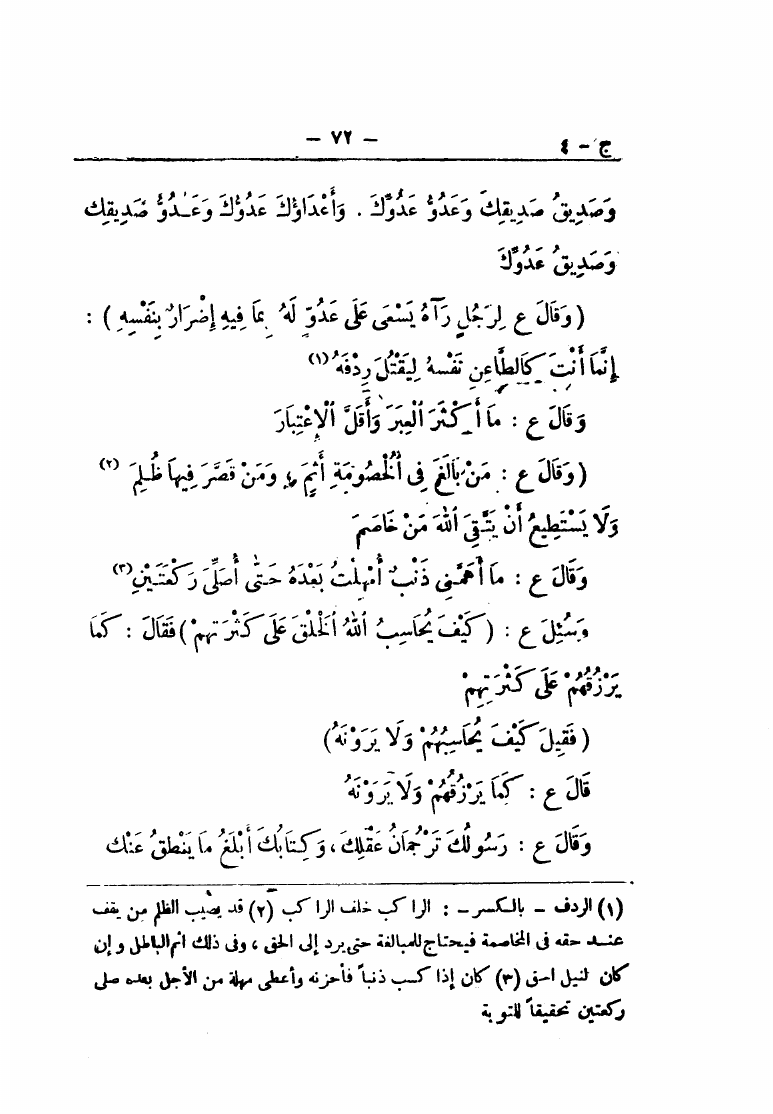 ج - ٤
– ٧٢ –
وَصَدِيقُ صَدِيقِكَ وَعَدُوُّ عَدُوِّكَ . وَأَعْدَاؤُكَ عَدُوُّكَ وَعَدُوُّ صَدِيقِكَ
وَصَدِيقُ عَدُوِّكَ
(وَقَالَ ع لِرَجُلٍ رَآهُ يَسْعَى عَلَى عَدُوٍّ لَهُ بِمَا فِيهِ إِضْرَارٌ بِنَفْسِهِ) :
إِنَّمَا أَنْتَ كَالطَّاعِنِ نَفْسَهُ لِيَقْتُلَ رِدْفَهُ (١)
وَقَالَ ع : مَا أَكْثَرَ الْعِبَرَ وَأَقَلَّ الْإِعْتِبَارَ
(وَقَالَ ع : مَنْ بَالَغَ فِى الْخُصُومَةِ أَثِمَ ، وَمَنْ قَصَّرَ فِيهَا ظُلِمَ (٢)
وَلَا يَسْتَطِيعُ أَنْ يَتَّقِىَ اللهَ مَنْ خَاصَمَ
وَقَالَ ع : مَا أَهَمَّنِى ذَنْبٌ أُمْهِلْتُ بَعْدَهُ حَتَّى أُصَلِّىَ رَكْعَتَيْنِ (٣)
وَسُئِلَ ع : (كَيْفَ يُحَاسِبُ اللهُ الْخَلْقَ عَلَى كَثْرَتِهِمْ) فَقَالَ : كَمَا
يَرْزُقُهُمْ عَلَى كَثْرَتِهِمْ
(فَقِيلَ كَيْفَ يُحَاسِبُهُمْ وَلَا يَرَوْنَهُ)
قَالَ ع : كَمَا يَرْزُقُهُمْ وَلَا يَرَوْنَهُ
وَقَالَ ع : رَسُولُكَ تَرْجُمَانُ عَقْلِكَ ، وَكِتَابُكَ أَبْلَغُ مَا يَنْطِقُ عَنْكَ
(١) الردف – بالكسر – : الراكب خلف الراكب (٢) قد يصيب الظلم من يقف
عند حقه فى المخاصمة فيحتاج للمبالغة حتى يرد إلى الحق ، وفى ذلك اثم الباطل وإن
كان لنيل الحق (٣) كان إذا كسب ذنباً فأحزنه وأعطى مهلة من الأجل بعده صلى
ركعتين تحقيقاً للتوبة